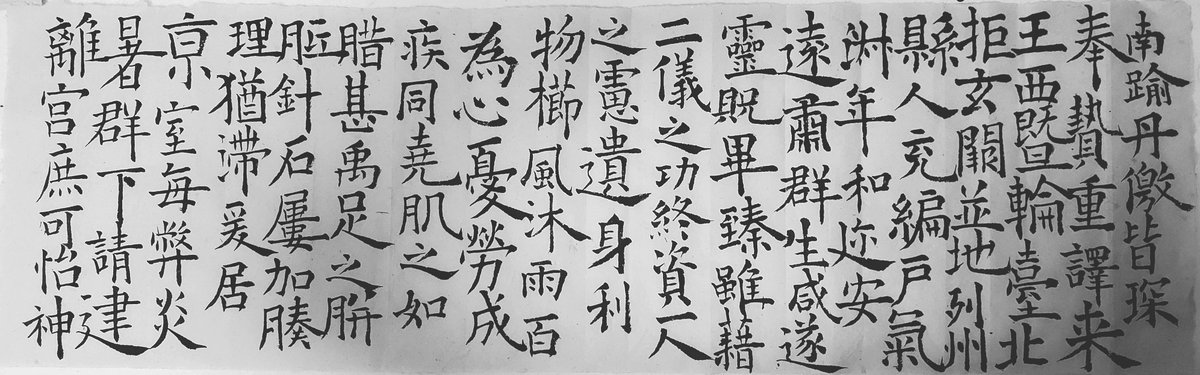 南踰丹徼皆琛
奉贄重譯来
王西暨輪臺北
拒玄闕並地列州
縣人充編戶氣
淑年和迩安
遠肅群生咸遂
靈貺畢臻雖藉
二儀之功終資一人
之慮遺身利
物櫛風沐雨百
為心憂勞成
疾同堯肌之如
腊甚禹足之胼
胝針石屢加腠
理猶滯爰居
京室每弊炎
暑群下請建
離宮庶可怡神